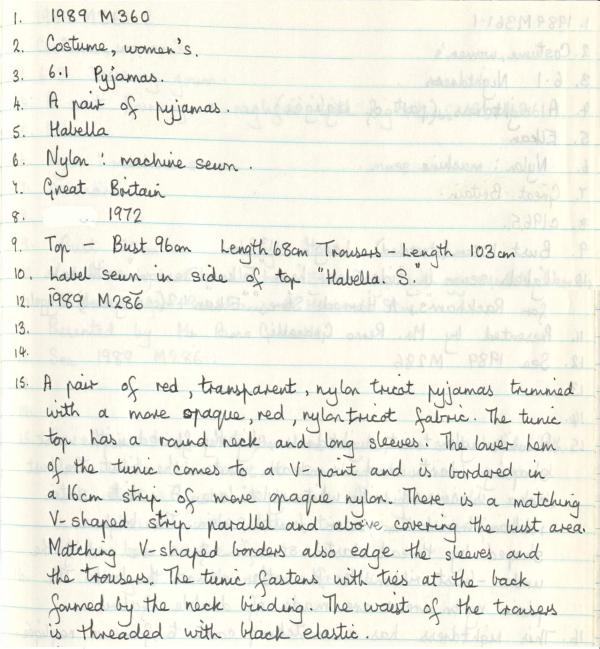 1. 1989 M360
2. Costume, women's.
3. 6.1 Pyjamas.
4. A pair of pyjamas.
5. Habella
6. Nylon : machine sewn.
7. Great Britain
8. 1972
9. Top - Bust 96cm Length 68cm Trousers - Length 103cm
10. Label sewn in side of top "Habella. S."
12. 1989 M286
13.
14.
15. A pair of red, transparent, nylon tricot pyjamas trimmed
with a more opaque, red, nylon tricot fabric. The tunic
top has a round neck and long sleeves. The lower hem
of the tunic comes to a V-point and is bordered in
a 16cm strip of more opaque nylon. There is a matching
V-shaped strip parallel and above covering the bust area.
Matching V-shaped borders also edge the sleeves and
the trousers. The tunic fastens with ties at the back
formed by the neck binding. The waist of the trousers
is threaded with black elastic.